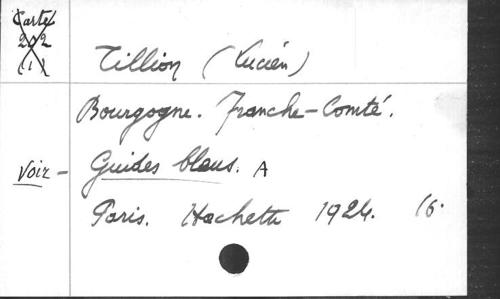 Carte
202
(1)
Tillion (Lucien)
Bourgogne. Franche-Comté.
Voir - Guides bleus. A
Paris. Hachette 1924. 16.